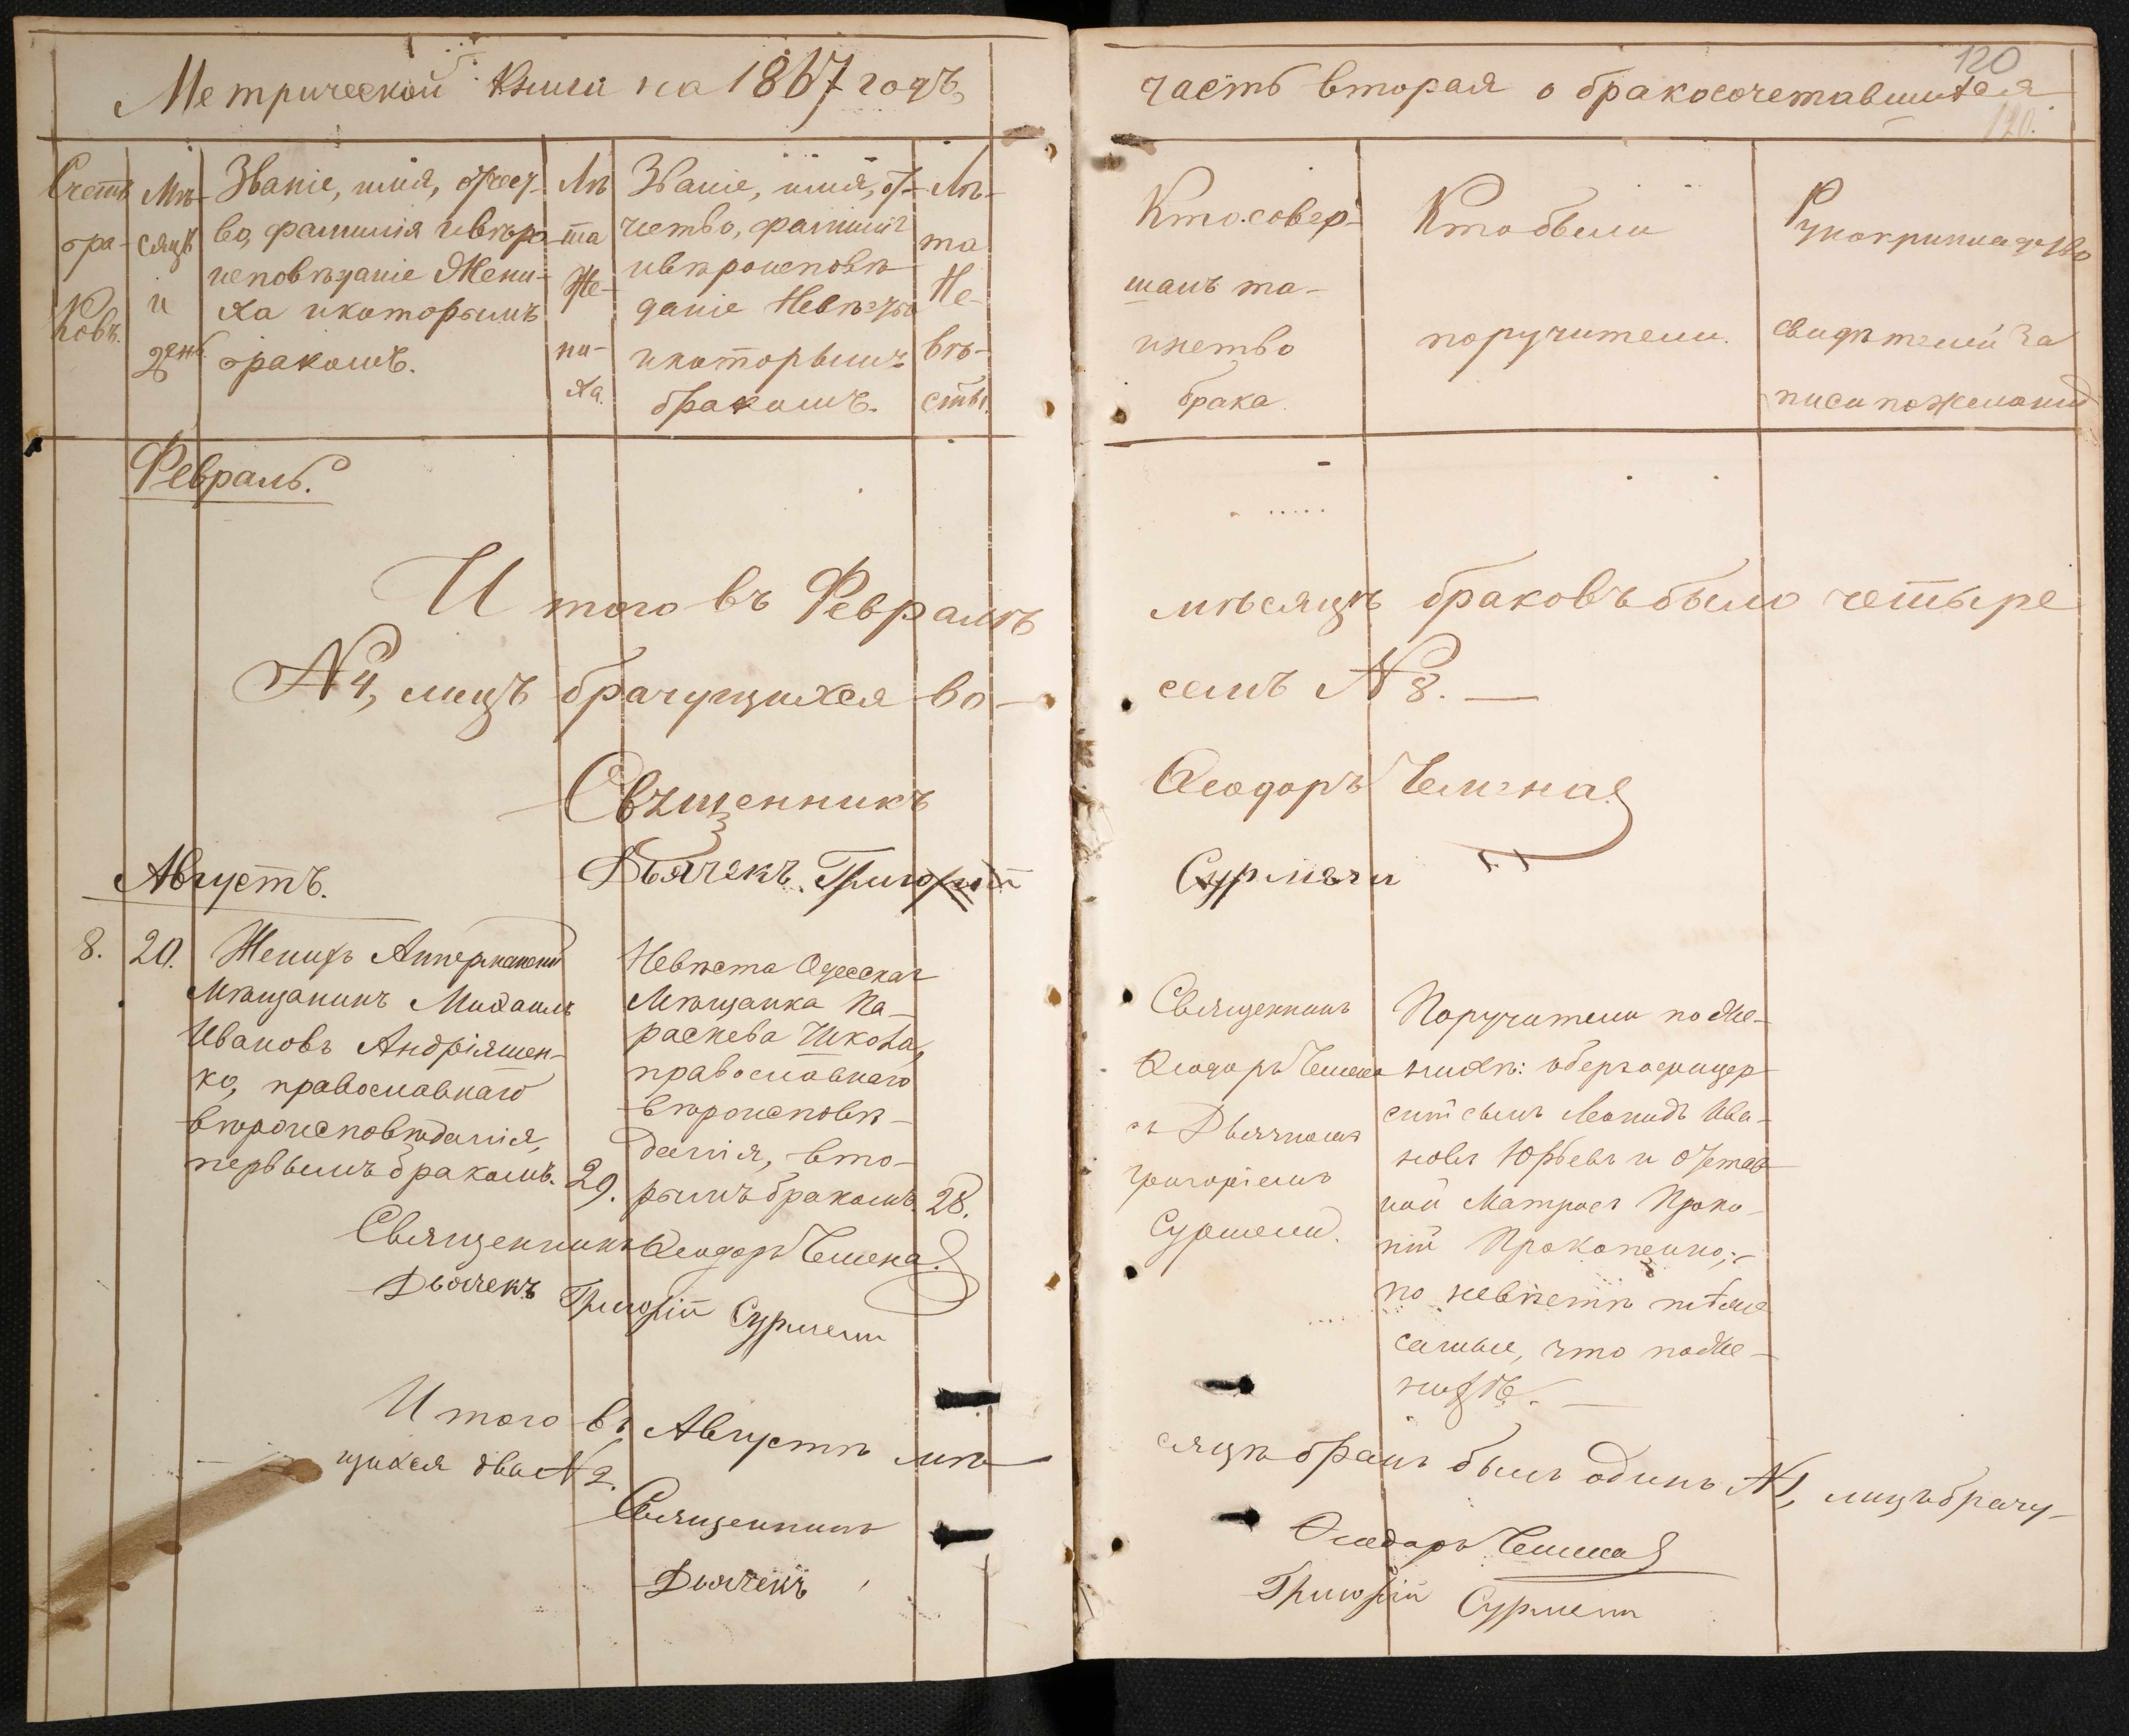 Метрической книги на 1867 годъ,
часть вторая о бракосочетавшихся
120
120.
Счетъ
бра-
ковъ.
Мѣ-
сяцъ
и
день.
Званіе, имя, отчест-
во, фамилія и вѣро
исповѣданіе Жени-
ха и которымъ
бракомъ.
Лѣ
та
Же-
ни-
ха.
Званіе, имя, от-
чество, фамилія
и вѣроисповѣ-
даніе Невѣсты
и которымъ
бракомъ.
Лѣ-
та
Не-
вѣ-
сты.
Кто совер-
шалъ та-
инство
брака.
Кто были
поручители.
Рукоприкладство
свидѣтелей за
писи по желанію
Февраль.
Итого въ Февралѣ мѣсяцѣ браковъ было четыре
№ 4, лицъ брачущихся во- семъ № 8. —
Свящженникъ Ѳеодоръ
Дьячекъ Григорій Сурмели
Августъ.
8. 20.
Женихъ Аккерманскій
Мѣщанинъ Михаилъ
Ивановъ Андріяшен-
ко, православнаго
вѣроисповѣданія,
первымъ бракомъ. 29.
Невѣста Одесская
Мѣщанка Па-
раскева
православнаго
вѣроисповѣ-
данія, вто-
рымъ бракомъ. 28.
Священникъ
Ѳеодоръ
съ Дьячкомъ
Григоріемъ
Сурмели.
Поручители по Же-
нихѣ: оберъ офицер-
скій сынъ Леонидъ Ива-
новъ Юрьевъ и Отстав-
ной Матросъ Проко-
пій Прокопенко;
по невѣстѣ тѣ же
самые, что по Же-
нихѣ. —
Священникъ Ѳеодоръ
Дьячекъ Григорій Сурмели
Итого въ Августѣ мѣ- сяцѣ бракъ былъ одинъ № 1, лицъ брачу-
щихся два № 2.
Священникъ Ѳеодоръ
Дьячекъ Григорій Сурмели